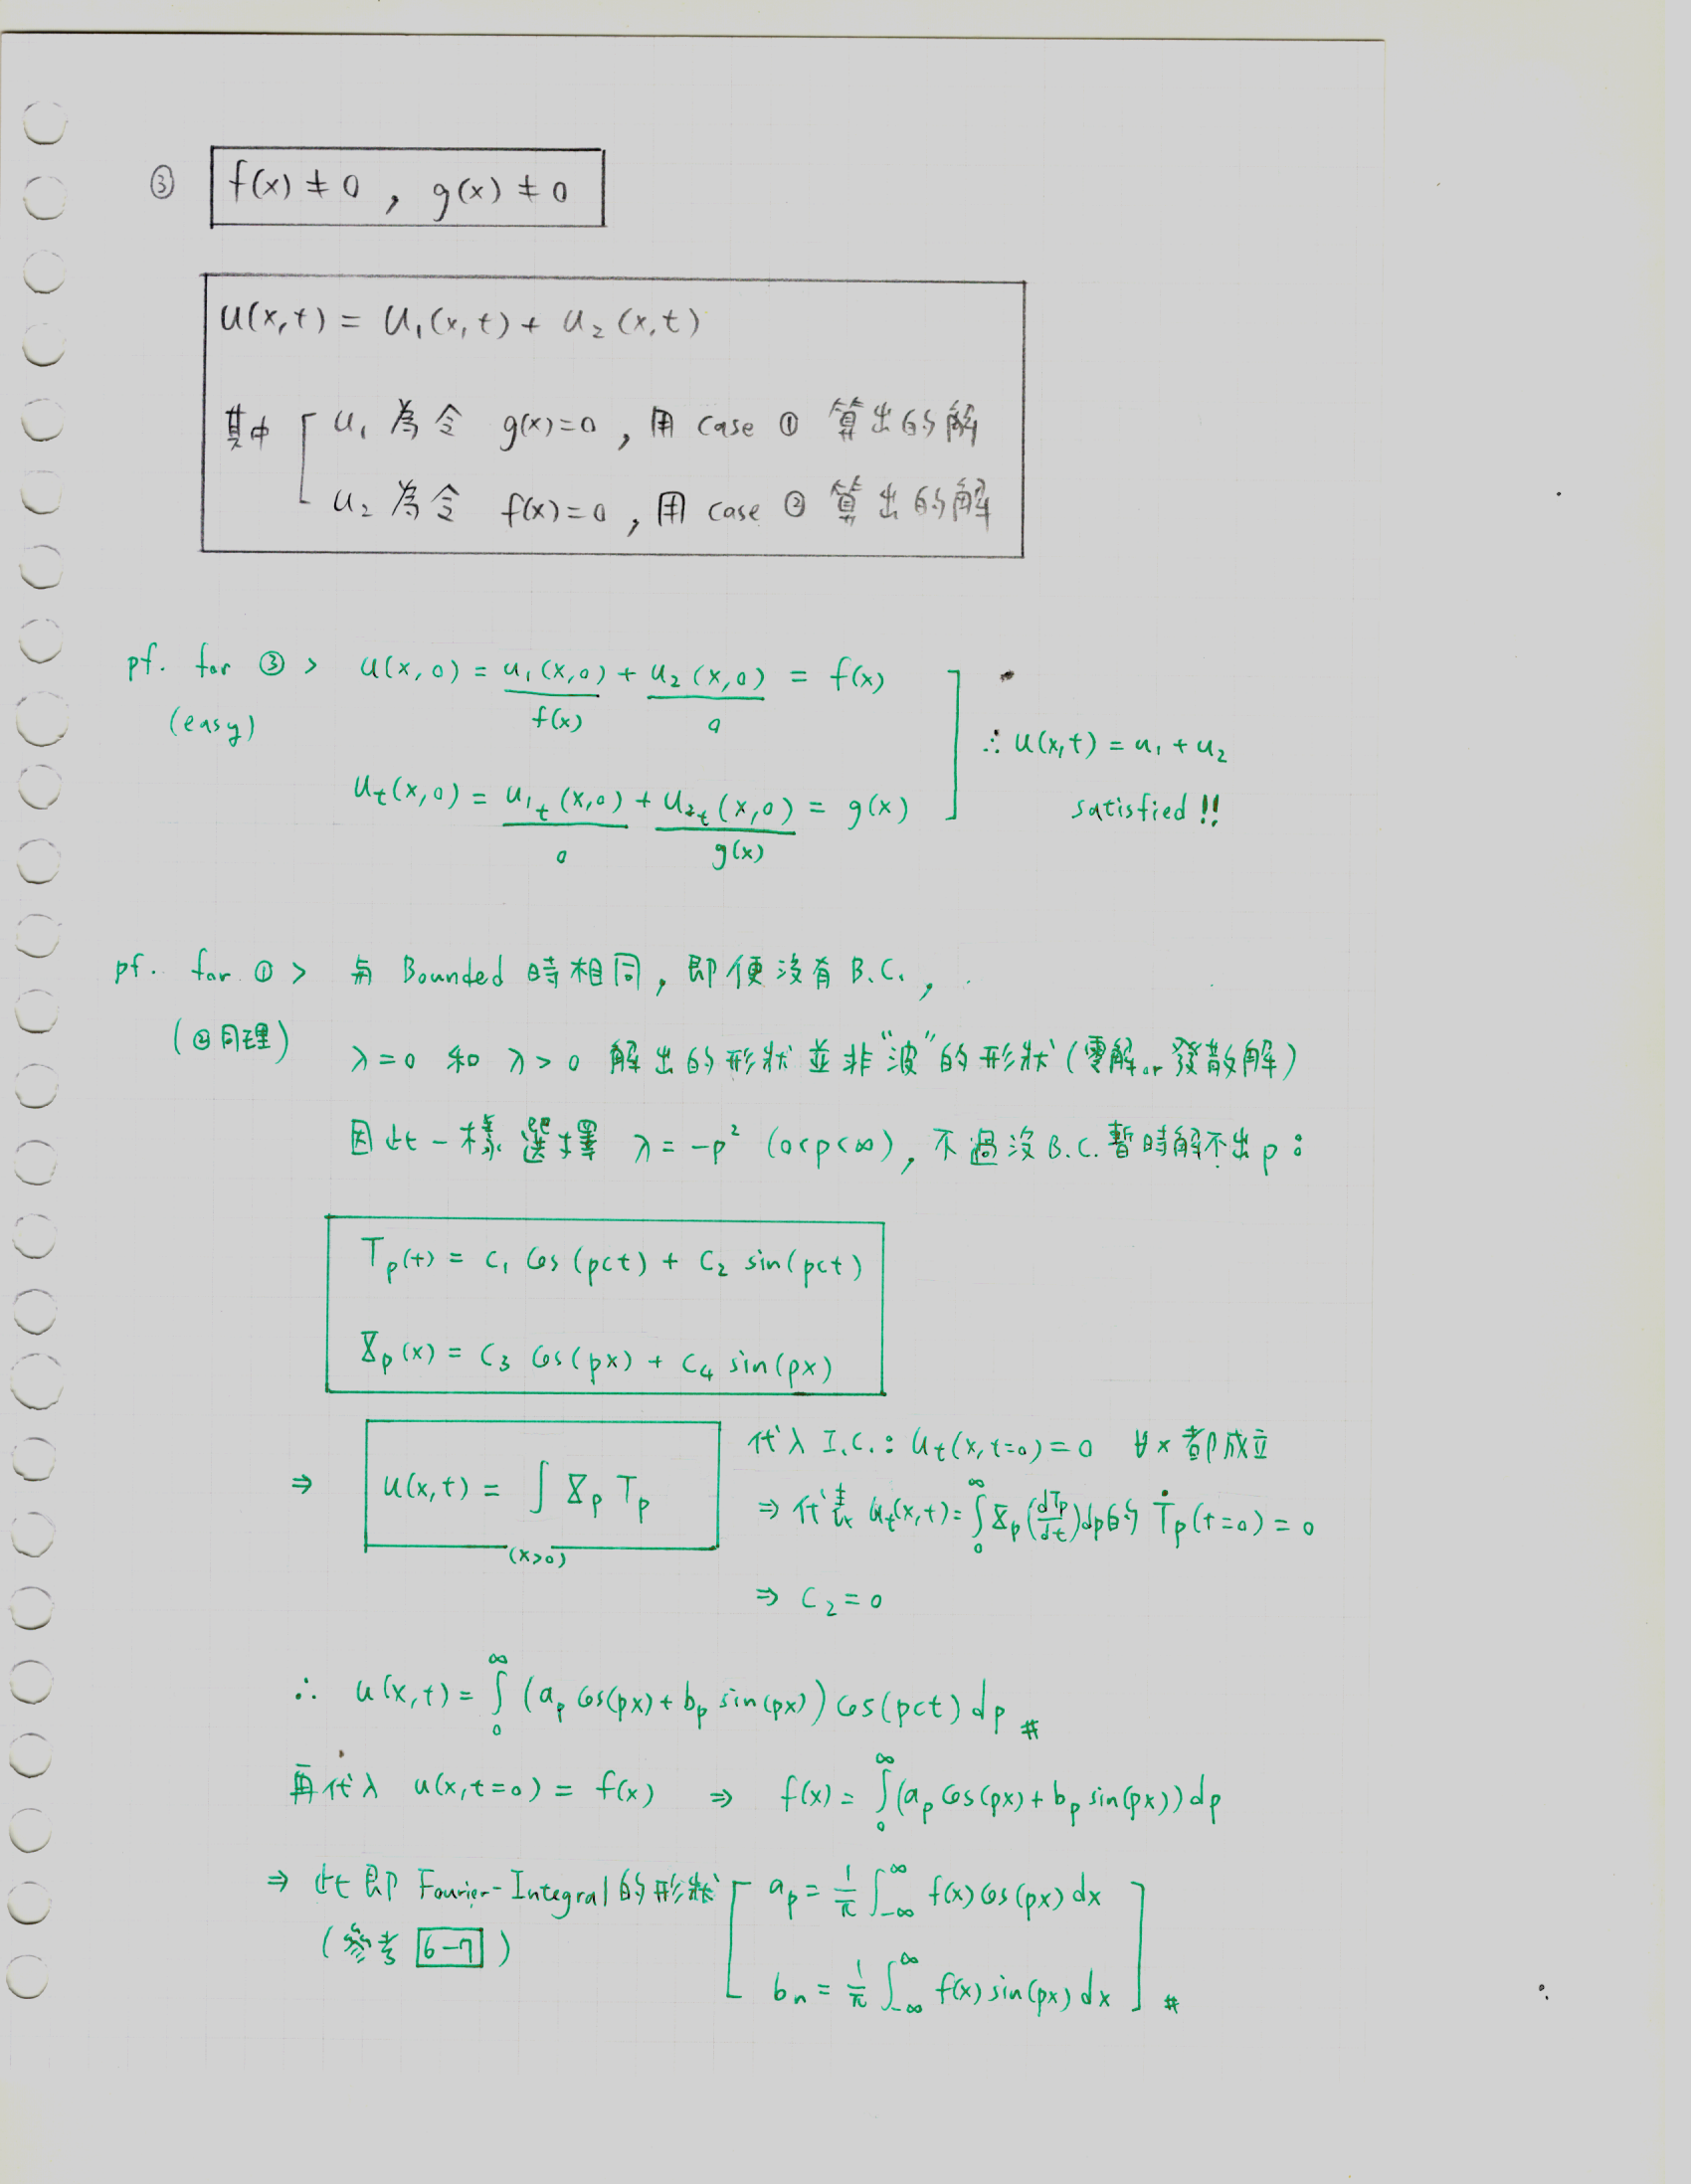 ③ f(x) ≠ 0 , g(x) ≠ 0
u(x,t) = u₁(x,t) + u₂(x,t)
其中 u₁ 為令 g(x)=0 , 用 case ① 算出的解
u₂ 為令 f(x)=0 , 用 case ② 算出的解
pf. for ③ > u(x,0) = u₁(x,0) + u₂(x,0) = f(x)
(easy) f(x) 0
∴ u(x,t) = u₁ + u₂
uₜ(x,0) = u₁ₜ(x,0) + u₂ₜ(x,0) = g(x) satisfied !!
0 g(x)
pf. for ① > 與 Bounded 時相同, 即便沒有 B.C. ,
(②同理) λ=0 和 λ>0 解出的形狀並非"波"的形狀 (零解 or 發散解)
因此一樣選擇 λ = -p² (0<p<∞), 不過沒 B.C. 暫時解不出 p :
Tp(t) = c₁ cos(pct) + c₂ sin(pct)
Xp(x) = c₃ cos(px) + c₄ sin(px)
⇒ u(x,t) = ∫ Xp Tp (x>0)
代入 I.C. : uₜ(x,t=0) = 0 ∀x 都成立
⇒ 代表 uₜ(x,t) = ∫₀^∞ Xp (dTp/dt) dp 的 Ṫp(t=0) = 0
⇒ c₂ = 0
∴ u(x,t) = ∫₀^∞ (ap cos(px) + bp sin(px)) cos(pct) dp #
再代入 u(x,t=0) = f(x) ⇒ f(x) = ∫₀^∞ (ap cos(px) + bp sin(px)) dp
⇒ 此即 Fourier-Integral 的形狀 ap = 1/π ∫_{-∞}^{∞} f(x) cos(px) dx
(參考 6-7) bn = 1/π ∫_{-∞}^{∞} f(x) sin(px) dx #